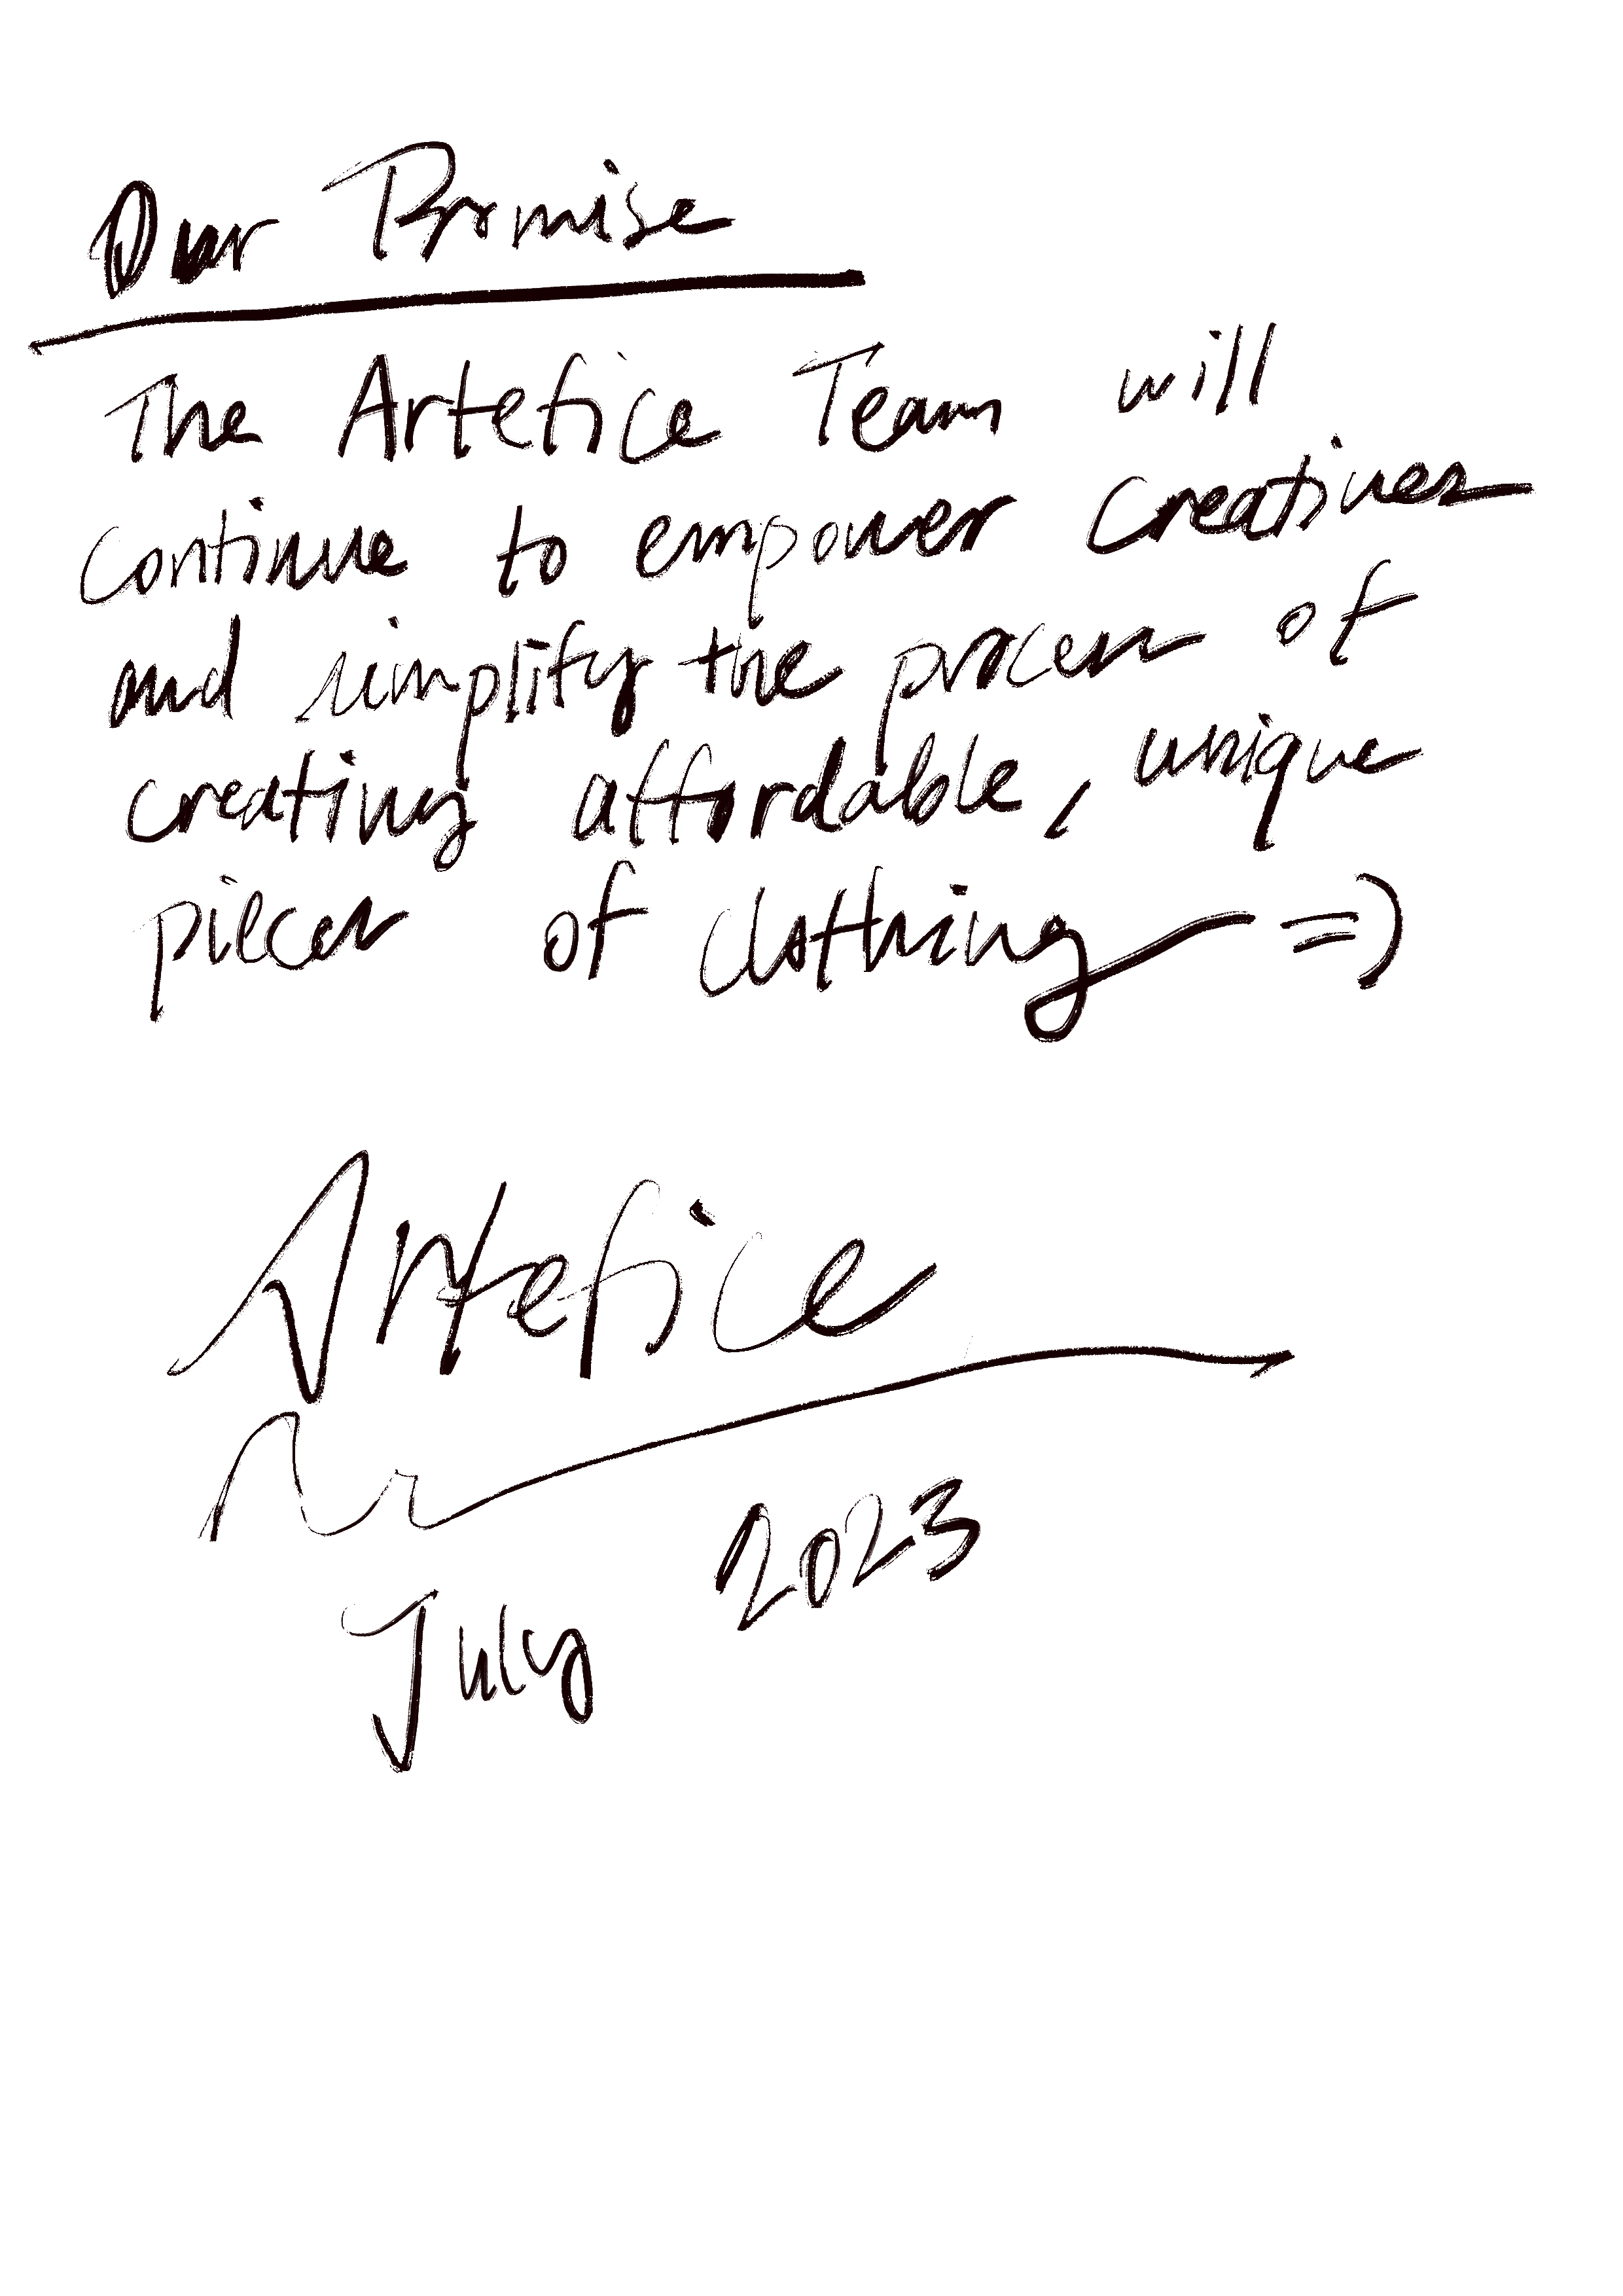 Our Promise
The Artefice Team will
continue to empower creatives
and simplify the process of
creating affordable, unique
pieces of clothing =)
Artefice
July 2023